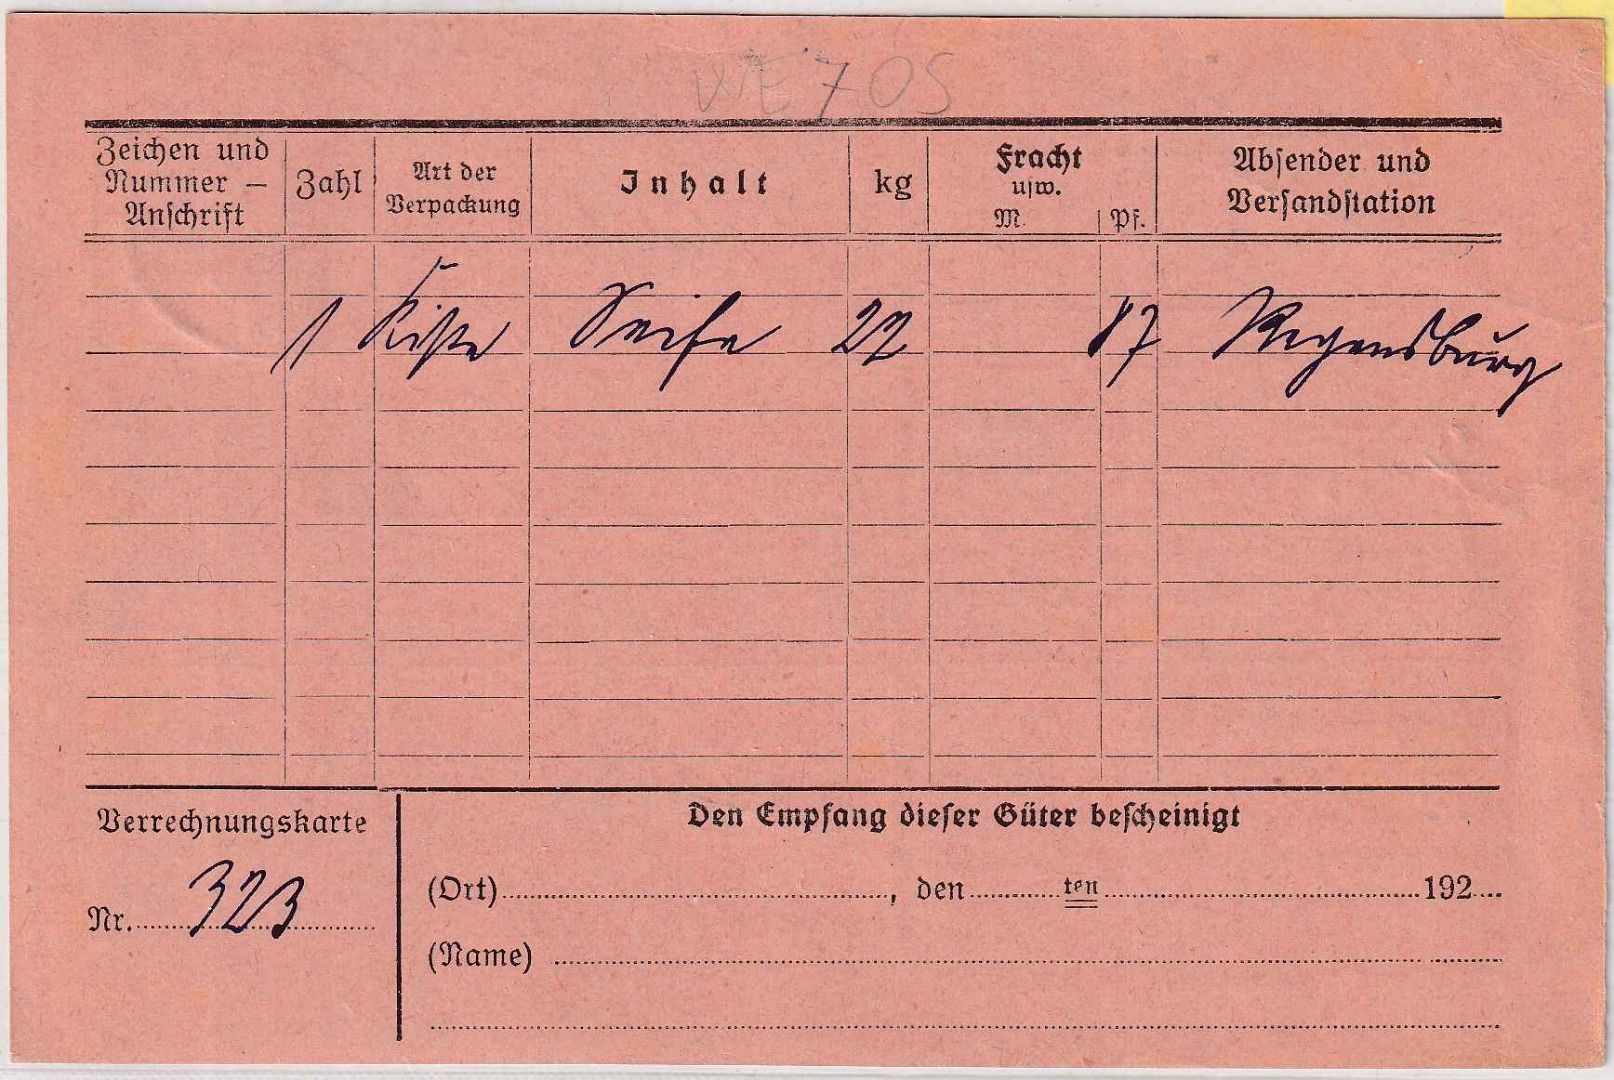 WE 705
Zeichen und Nummer – Anschrift | Zahl | Art der Verpackung | Inhalt | kg | Fracht usw. M. | Pf. | Absender und Versandstation
1 Kiste Seife 22 87 Regensburg
Verrechnungskarte
Nr. 323
Den Empfang dieser Güter bescheinigt
(Ort) , den ten 192
(Name)